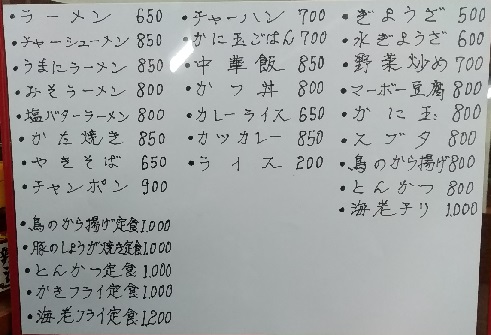 ・ラーメン 650
・チャーシューメン 850
・うまにラーメン 850
・みそラーメン 800
・塩バターラーメン 800
・かた焼き 850
・やきそば 650
・チャンポン 900
・鳥のから揚げ定食 1,000
・豚のしょうが焼き定食 1,000
・とんかつ定食 1,000
・かきフライ定食 1,000
・海老フライ定食 1,200
・チャーハン 700
・かに玉ごはん 700
・中華飯 850
・かつ丼 800
・カレーライス 650
・カツカレー 850
・ライス 200
・ぎょうざ 500
・水ぎょうざ 600
・野菜炒め 700
・マーボー豆腐 800
・かに玉 800
・スブタ 800
・鳥のから揚げ 800
・とんかつ 800
・海老チリ 1,000